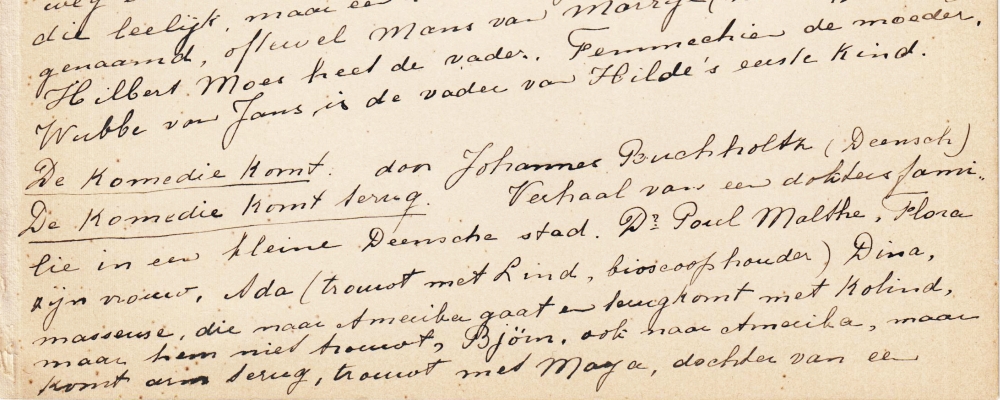 die leelijk, maar een
genaamd, oftewel Mans van Marrije
Hilbert Moes heet de vader. Femmechien de moeder.
Wubbe van Jans is de vader van Hilde's eerste kind.
De Komedie Komt. door Johannes Buchholtz (Deensch)
De Komedie Komt terug. Verhaal van een doktersfami-
lie in een kleine Deensche stad. Dr. Poul Malthe, Flora
zijn vrouw, Ada (trouwt met Lind, bioscoophouder) Dina,
masseuse, die naar Amerika gaat en terugkomt met Kolind,
maar hem niet trouwt, Björn, ook naar Amerika, maar
komt arm terug, trouwt met Maya, dochter van een